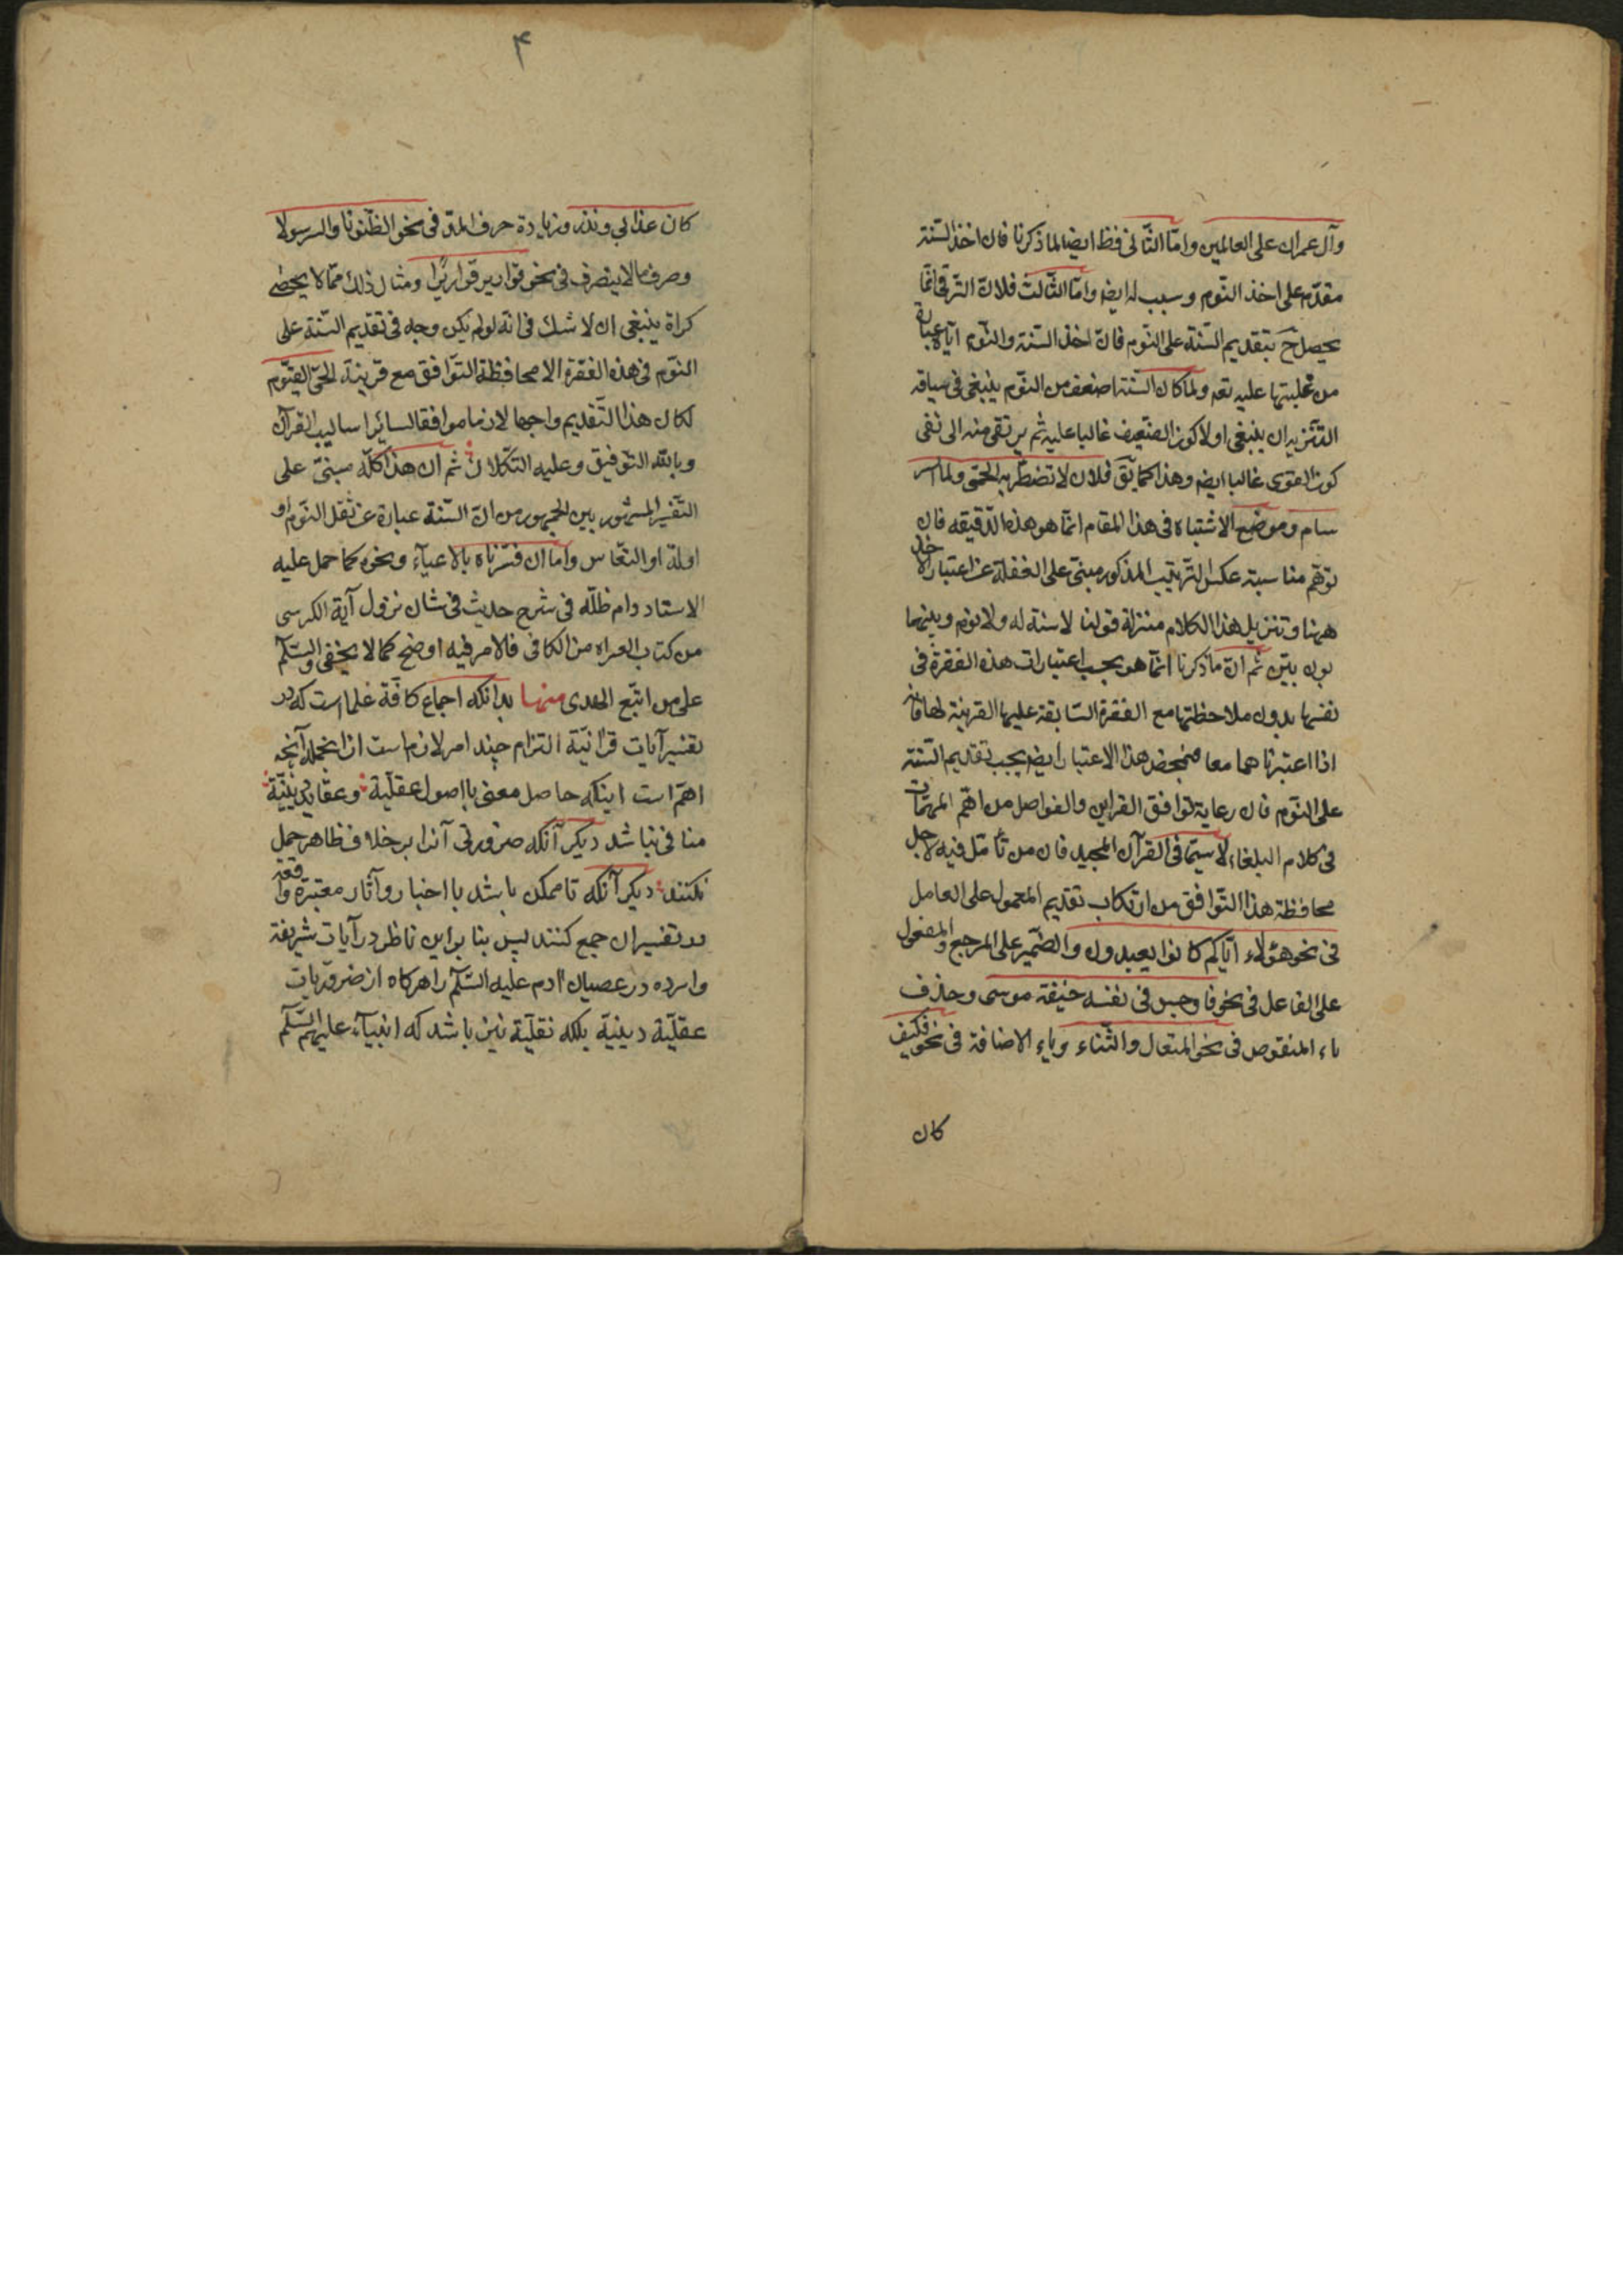 وآل عمران علی العالمین وامّا الثّانی فظ ایضا لما ذکرنا فان اخذ السّنة
مقدّم علی اخذ النّوم وسبب له ایضه وامّا الثّالث فلانّ التّرقی انّما
یحصل ح بتقدیم السّنة علی النّوم فانّ اخذ السّنة والنّوم ایّاه عبارة
من غلبتها علیه تعه ولمّا کان السّنة اضعف من النّوم ینبغی فی سیاقه
التّنزیه ان ینبغی اولا کون الضّعیف غالبا علیه ثم یرتقی منه الی نفی
کون القوی غالبا ایضه وهذا کما یق فلان لا تضطرّ به الحمّی ولا
سام وموضع الاشتباه فی هذا المقام انّما هو هذه الدّقیقه فان
توهّم مناسبة عکس الترتیب المذکور مبنیّ علی الغفلة عن اعتبار الاخذ
ههنا وتنزیل هذا الکلام منزلة قولنا لا سنة له ولا نوم وبینهما
بون بیّن ثم انّ ما ذکرنا انّما هو بحسب اعتبارات هذه الفقرة فی
نفسها بدون ملاحظتها مع الفقرة السّابقة علیها القرینة لها فانه
اذا اعتبرناهما معا فبمحض هذا الاعتبار ایضه یجب تقدیم السّنة
علی النّوم فان رعایة توافق القراین والفواصل من اهمّ المهمّات
فی کلام البلغاء لا سیّما فی القرآن المجید فان من تأمّل فیه لاجل
محافظة هذا التّوافق من ارتکاب تقدیم المعمول علی العامل
فی نحو هؤلاء ایّاکم کانوا یعبدون والضّمیر علی المرجع والمفعول
علی الفاعل فی نحو فاوجس فی نفسه خیفة موسی وحذف
یاء المنقوص فی نحو المتعال والتّناد ویاء الاضافة فی نحو فکیف
کان
۴
کان عذابی ونذر وزیادة حرف المدّ فی نحو الظّنونا والرسولا
وصرف ما لا ینصرف فی نحو قواریر قواریرا ومثال ذلك ممّا لا یحصی
کراة ینبغی ان لا شك فی انّه لو لم یکن وجه فی تقدیم السّنة علی
النّوم فی هذه الفقرة الا محافظة التّوافق مع قرینة الحیّ القیّوم
لکان هذا التّقدیم واجبا لازما موافقا لسائر اسالیب القرآن
وبالله التّوفیق وعلیه التّکلان ثم ان هذا کلّه مبنیّ علی
التّفسیر المشهور بین الجمهور من انّ السّنة عبارة عن ثقل النّوم او
اوله او النّعاس وامّا ان فسّرناه بالاعیاء ونحوه کما حمل علیه
الاستاد دام ظلّه فی شرح حدیث فی شان نزول آیة الکرسی
من کتاب العراه من الکافی فالامر فیه اوضح کما لا یخفی والسّلم
علی من اتّبع الهدی منها بدانکه اجماع کافّة علما است که در
تفسیر آیات قرآنیّة التزام چند امر لازم است از انجمله آنچه
اهمّ است اینکه حاصل معنی با اصول عقلیّة وعقاید دینیّة
منافی نباشد دیگر آنکه ضرورتی آنرا برخلاف ظاهر حمل
نکنند دیگر آنکه تا ممکن باشد با اخبار وآثار معتبرة واقعه
در تفسیر ان جمع کنند پس بنا براین ناظر در آیات شریفة
وارده در عصیان آدم علیه السّلم را هرکاه از ضروریات
عقلیّة دینیة بلکه نقلیّة نیز باشد که انبیآء علیهم السّلم